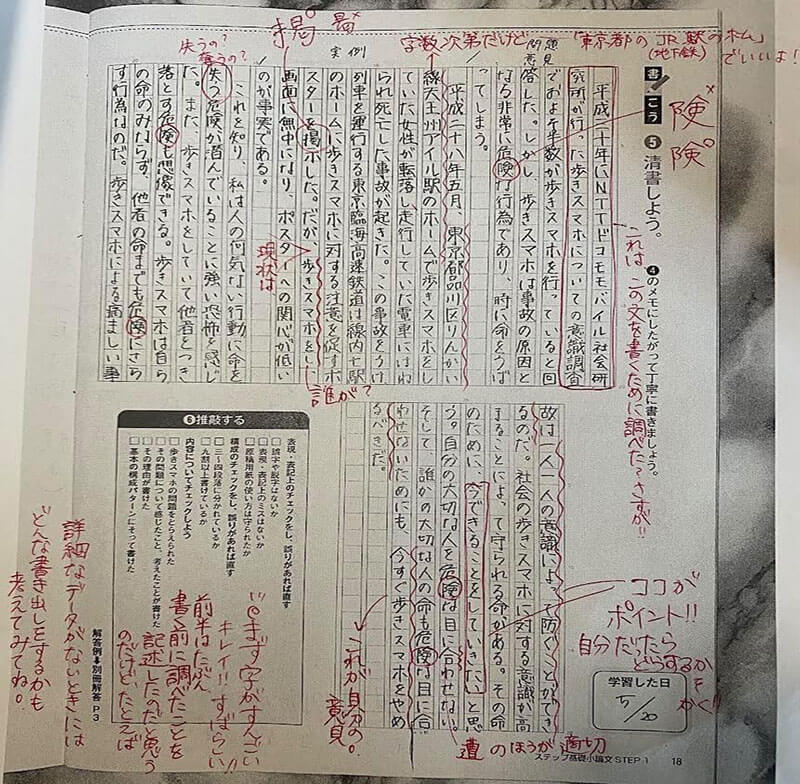 書こう
❺清書しよう。
❹のメモにしたがって丁寧に書きましょう。
平成三十年にNTTドコモモバイル社会研
究所が行った歩きスマホについての意識調査
でおよそ半数が歩きスマホを行っていると回
答した。しかし、歩きスマホは事故の原因と
なる非常に危険な行為であり、時に命をうば
ってしまう。
平成二十八年五月、東京都品川区りんかい
線天王州アイル駅のホームで歩きスマホをし
ていた女性が転落し、走行していた電車にはね
られ死亡した事故が起きた。この事故をうけ、
列車を運行する東京臨海高速鉄道は線内七駅
のホームに歩きスマホに対する注意を促すポ
スターを掲示した。だが、歩きスマホをし、
画面に無中になり、ポスターへの関心が低い
のが事実である。
これを知り、私は人の何気ない行動に命を
失う危険が潜んでいることに強い恐怖を感じ
た。また、歩きスマホをしていて他者をつき
落とす危険も想像できる。歩きスマホは自ら
の命のみならず、他者の命までも危険にさら
す行為なのだ。歩きスマホによる痛ましい事
故は一人一人の意識によって防ぐことができ
るのだ。社会の歩きスマホに対する意識が高
まることによって守られる命がある。その命
のために、今できることをしていきたいと思
う。自分の大切な人を危険な目に合わせない。
そして、誰かの大切な人の命も危険な目に合
わせないためにも、今すぐ歩きスマホをやめ
るべきだ。
意見
問題
実例
字数次第だけど
「東京都のJR駅のホーム」
(地下鉄)
でいいよ!
険
険
掲
失うの?
奪うの?
これは この文を書くために調べた?さすが!!
現状は
誰が?
ココが
ポイント!!
自分だったら
どうするか
をかく!!
遭 のほうが適切
これが自分の
意見
まず字がすんごい
キレイ!!すばらしい!!
前半はたぶん
書く前に調べたことを
記述したのだと思う
のだけど、たとえば
詳細なデータがないときには
どんな書き出しをするかも
考えてみてね。
❻推敲する
表現・表記上のチェックをし、誤りがあれば直す
□誤字や脱字はないか
□表現・表記上のミスはないか
□原稿用紙の使い方は守られたか
構成のチェックをし、誤りがあれば直す
□三〜四段落に分かれているか
□九割以上書けているか
内容についてチェックしよう
□歩きスマホの問題をとらえられた
□その問題について感じたこと、考えたことが書けた
□その理由が書けた
□基本の構成パターンにそって書けた
解答例➡別冊解答P3
学習した日
5/20
ステップ基礎小論文 STEP 1
18